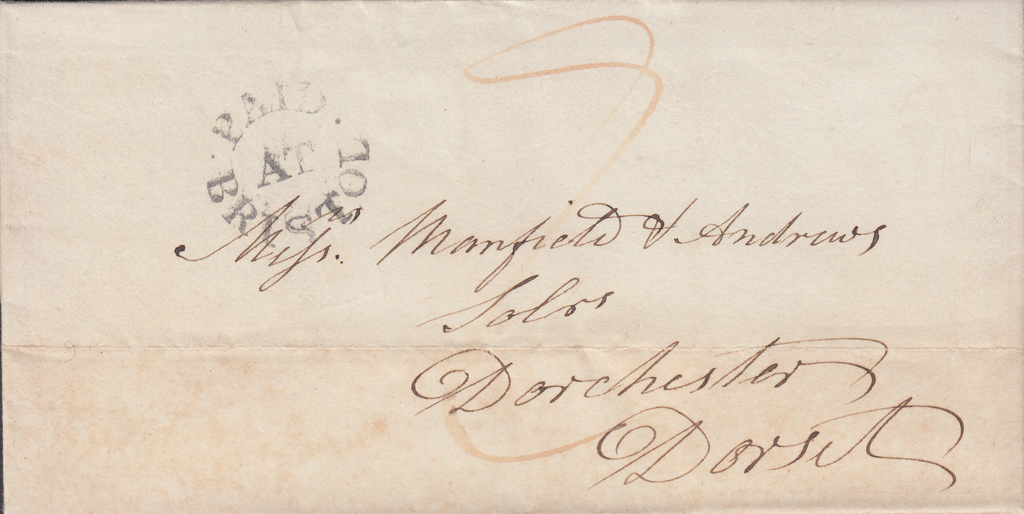 PAID AT BRISTOL
Messrs. Manfield & Andrews
Solrs
Dorchester
Dorset